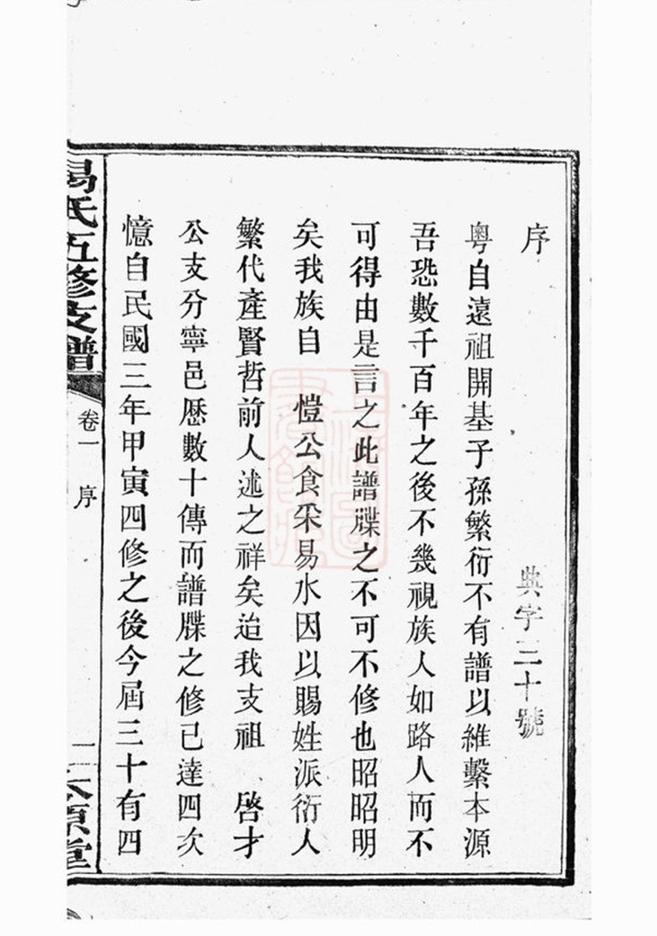 序
典字三十號
粤自遠祖開基子孫繁衍不有譜以維繫本源
吾恐數千百年之後不幾視族人如路人而不
可得由是言之此譜牒之不可不修也昭昭明
矣我族自 愷公食采易水因以賜姓派衍人
繁代產賢哲前人述之祥矣迨我支祖 啓才
公支分寧邑歷數十傳而譜牒之修已達四次
憶自民國三年甲寅四修之後今屆三十有四
易氏五修支譜
卷一 序
一
太原堂